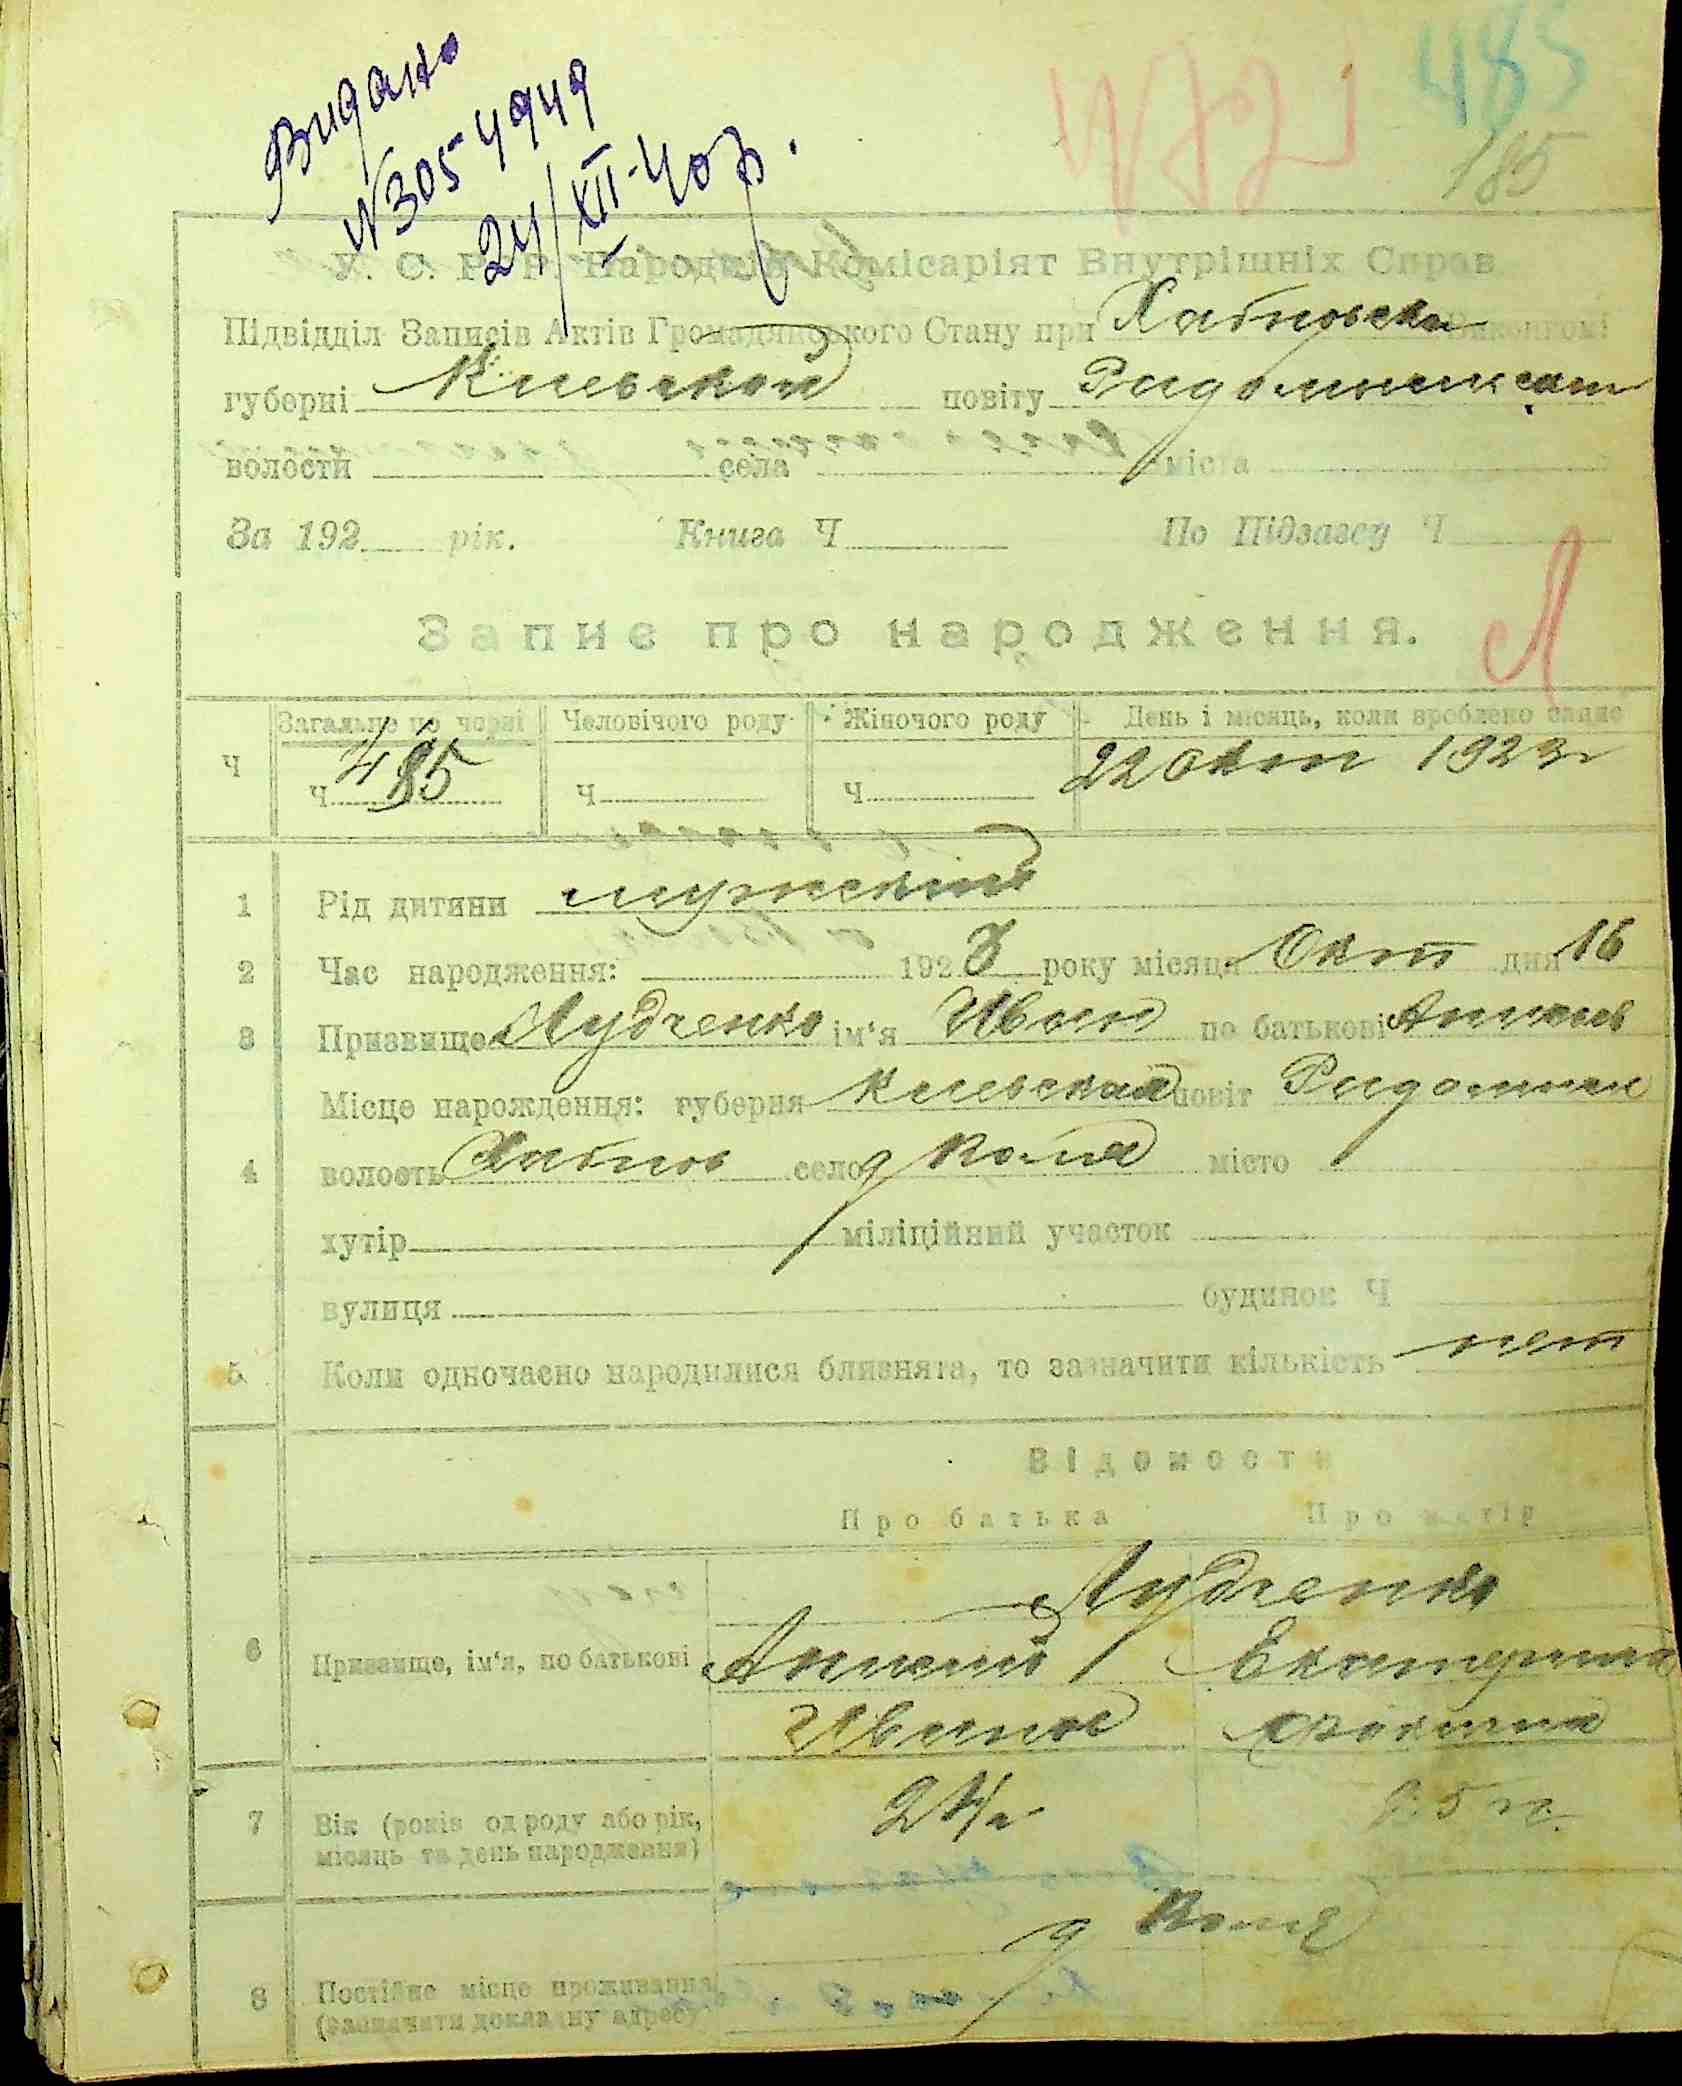 Видано
N 305 4949
24/XII-40р.
485
185
У. С. Р. Р. Народній Комісаріят Внутрішніх Справ
Підвідділ Записів Актів Громадянського Стану при Хабновском Виконкомі
губерні Киевской повіту Радомысльск
волости села міста
За 192 рік. Книга Ч По Підзагсу Ч
Запис про народження.
Л
Загальне по черзі Человічого роду Жіночого роду День і місяць, коли зроблено запис
Ч Ч 485 Ч Ч 22 Окт 1923 г
1 Рід дитини мужской
2 Час народження: 1923 року місяця Окт дня 16
3 Призвище Лудченко ім'я Иван по батькові
Місце нарождення: губерня Киевская повіт Радомысл
4 волость Хабнов село д место
хутір міліційний участок
вулиця будинок Ч
5 Коли одночасно народилися близнята, то зазначити кількість нет
Відомости
Про батька Про матір
Лудченко
6 Призвище, ім'я, по батькові Екатерина
Иванов
7 Вік (років од роду або рік,
місяць та день народження)
24 г 25 г.
д
8 Постійне місце проживання
(зазначити докладну адресу)